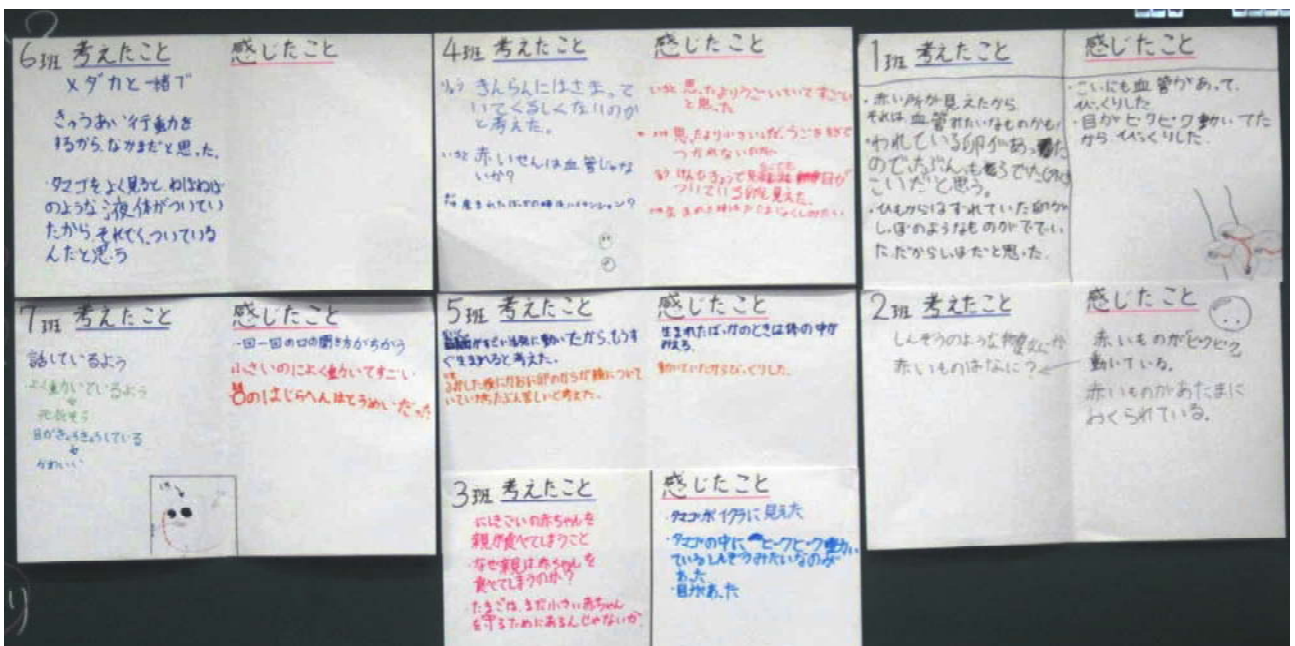 6班 考えたこと
メダカと一緒で
きゅうあい行動を
するから、なかまだと思った。
・タマゴをよく見ると、ねばねば
のような液体がついてい
たから、それでくっついている
んだと思う
感じたこと
4班 考えたこと
きんらんにはさまって
いてくるしくないのか
と考えた。
赤いせんは血管じゃな
いか?
感じたこと
思ったよりうごいていてすごい
と思った
思ったより小さい
つかれないのか
目が
ついている
1班 考えたこと
・赤い所が見えたから
それは、血管みたいなものかも
・われている卵があった
こいだと思う。
・ひもからはずれていた卵から
しっぽのようなものがでてい
た。だからしっぽだと思った。
感じたこと
・こいにも血管があって、
びっくりした
・目がピクピク動いてた
から、びっくりした。
7班 考えたこと
話しているよう
よく動いているよう
目がきょろきょろしている
かわいい
感じたこと
・一回一回の口の開き方がちがう
小さいのによく動いてすごい
5班 考えたこと
動いたから、もうす
ぐ生まれると考えた。
感じたこと
生まれたばかりのときは体の中が
みえる。
動いていたからびっくりした。
2班 考えたこと
赤いものはなに?
感じたこと
赤いものがピクピク
動いている。
赤いものがあたまに
おくられている。
3班 考えたこと
にしきごいの赤ちゃんを
親が食べてしまうこと
・なぜ親は赤ちゃんを
食べてしまうのか?
・たまごは、まだ小さい赤ちゃん
を守るためにあるんじゃないか
感じたこと
・タマゴがイクラに見えた
・タマゴの中にピクピク動い
ているしんぞうみたいなのが
あった
・目があった